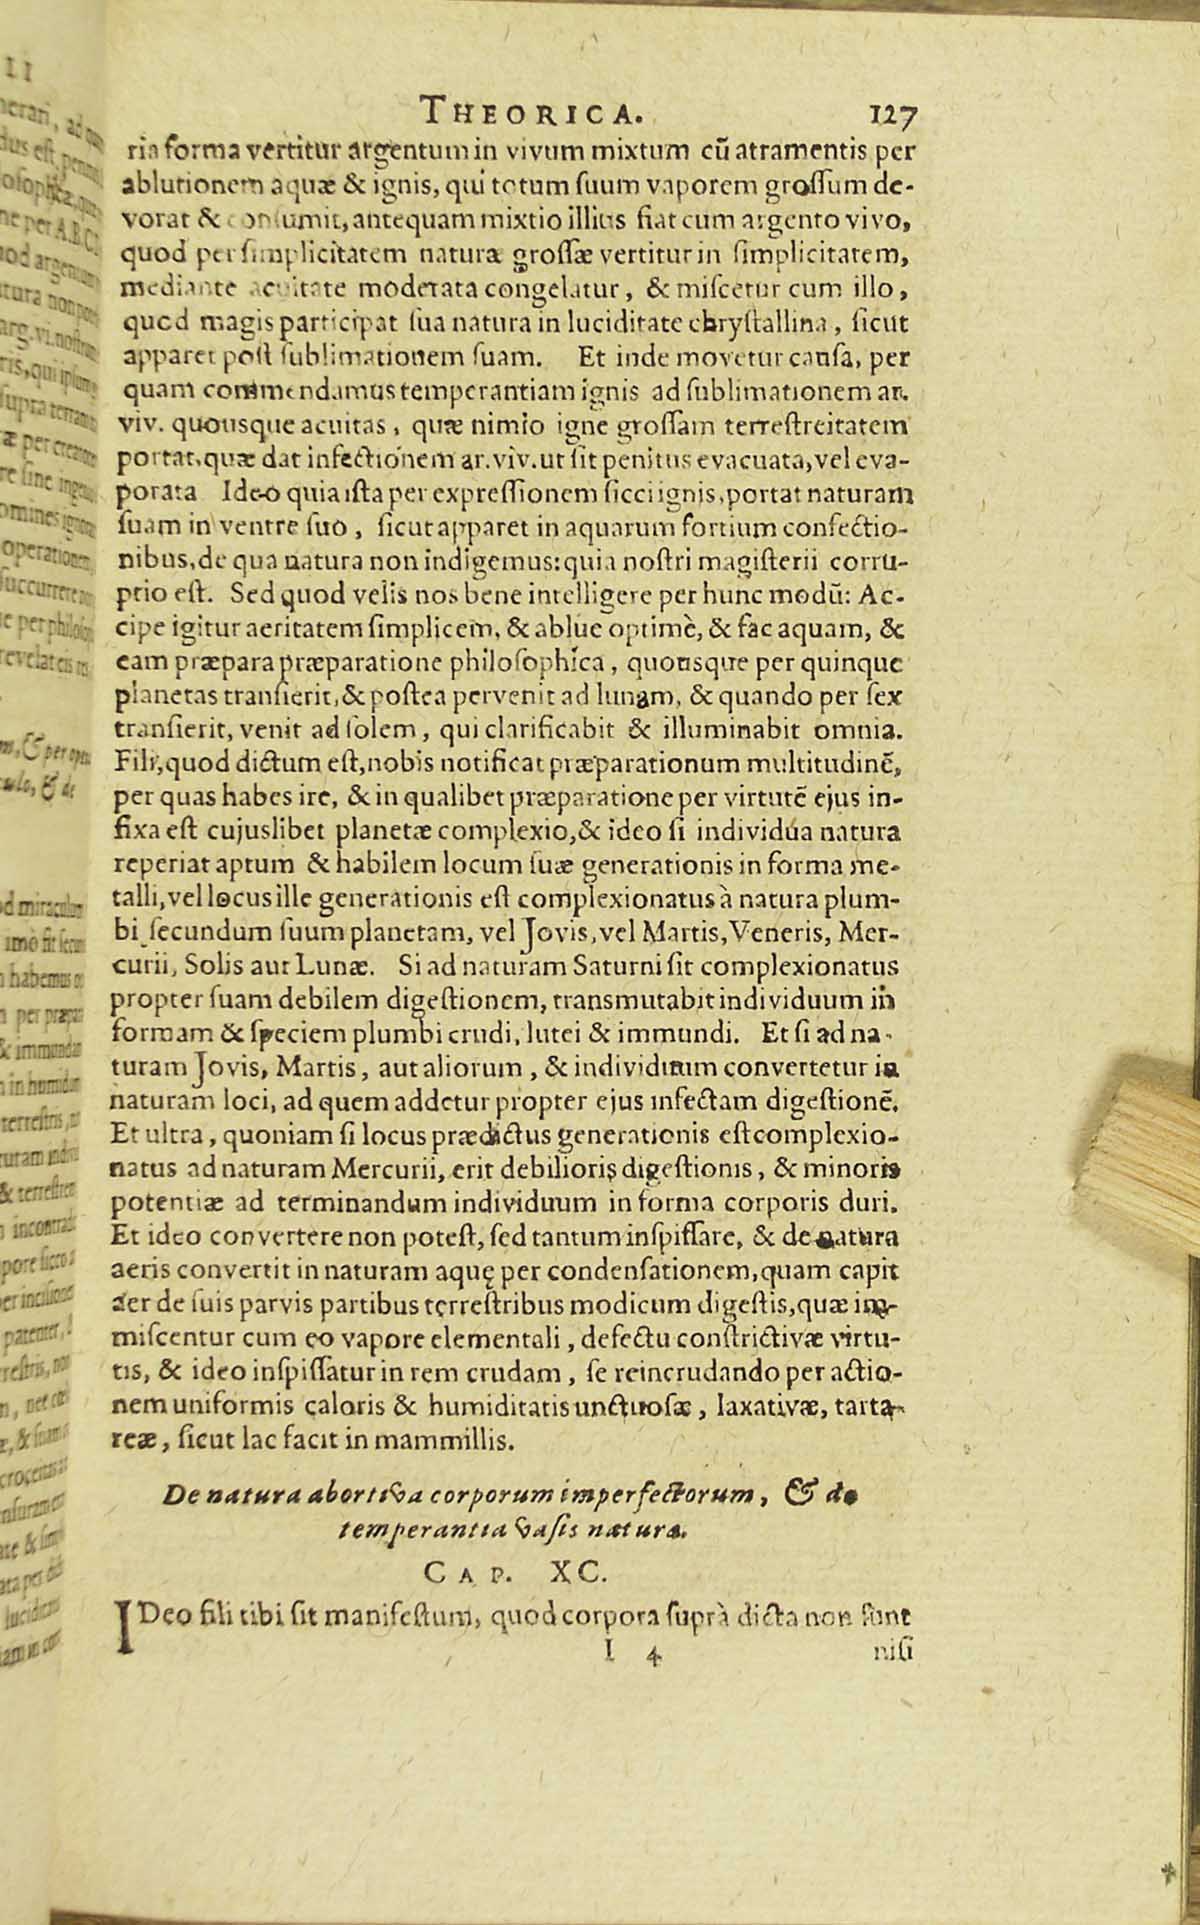 THEORICA. 127
ria forma vertitur argentum in vivum mixtum cũ atramentis per
ablutionem aquæ & ignis, qui totum ſuum vaporem groſſum de-
vorat & conſumit, antequam mixtio illius fiat cum argento vivo,
quod per ſimplicitatem naturæ groſſæ vertitur in ſimplicitatem,
mediante acuitate moderata congelatur, & miſcetur cum illo,
quod magis participat ſua natura in luciditate chryſtallina, ſicut
apparet poſt ſublimationem ſuam. Et inde movetur cauſa, per
quam commendamus temperantiam ignis ad ſublimationem ar.
viv. quouſque acuitas, quæ nimio igne groſſam terreſtreitatem
portat, quæ dat infectionem ar. viv. ut ſit penitus evacuata, vel eva-
porata Ideo quia iſta per expreſſionem ſicci ignis, portat naturam
ſuam in ventre ſuo, ſicut apparet in aquarum fortium confectio-
nibus, de qua natura non indigemus: quia noſtri magiſterii corru-
ptio eſt. Sed quod velis nos bene intelligere per hunc modũ: Ac-
cipe igitur aeritatem ſimplicem, & ablue optimè, & fac aquam, &
eam præpara præparatione philoſophica, quouſque per quinque
planetas tranſierit, & poſtea pervenit ad lunam, & quando per ſex
tranſierit, venit ad ſolem, qui clarificabit & illuminabit omnia.
Fili, quod dictum eſt, nobis notificat præparationum multitudinẽ,
per quas habes ire, & in qualibet præparatione per virtutẽ ejus in-
fixa eſt cujuslibet planetæ complexio, & ideo ſi individua natura
reperiat aptum & habilem locum ſuæ generationis in forma me-
talli, vel locus ille generationis eſt complexionatus à natura plum-
bi ſecundum ſuum planetam, vel Jovis, vel Martis, Veneris, Mer-
curii, Solis aut Lunæ. Si ad naturam Saturni ſit complexionatus
propter ſuam debilem digeſtionem, transmutabit individuum in
formam & ſpeciem plumbi crudi, lutei & immundi. Et ſi ad na-
turam Jovis, Martis, aut aliorum, & individuum convertetur in
naturam loci, ad quem addetur propter ejus infectam digeſtionẽ.
Et ultra, quoniam ſi locus prædictus generationis eſt complexio-
natus ad naturam Mercurii, erit debilioris digeſtionis, & minoris
potentiæ ad terminandum individuum in forma corporis duri.
Et ideo convertere non poteſt, ſed tantum inſpiſſare, & de natura
aeris convertit in naturam aquę per condenſationem, quam capit
aer de ſuis parvis partibus terreſtribus modicum digeſtis, quæ im-
miſcentur cum eo vapore elementali, defectu conſtrictivæ virtu-
tis, & ideo inſpiſſatur in rem crudam, ſe reincrudando per actio-
nem uniformis caloris & humiditatis unctuoſæ, laxativæ, tarta-
reæ, ſicut lac facit in mammillis.
De natura abortiva corporum imperfectorum, & de
temperantia vaſis natura.
CAP. XC.
IDeo fili tibi ſit manifeſtum, quod corpora ſuprà dicta non ſunt
I 4 niſi